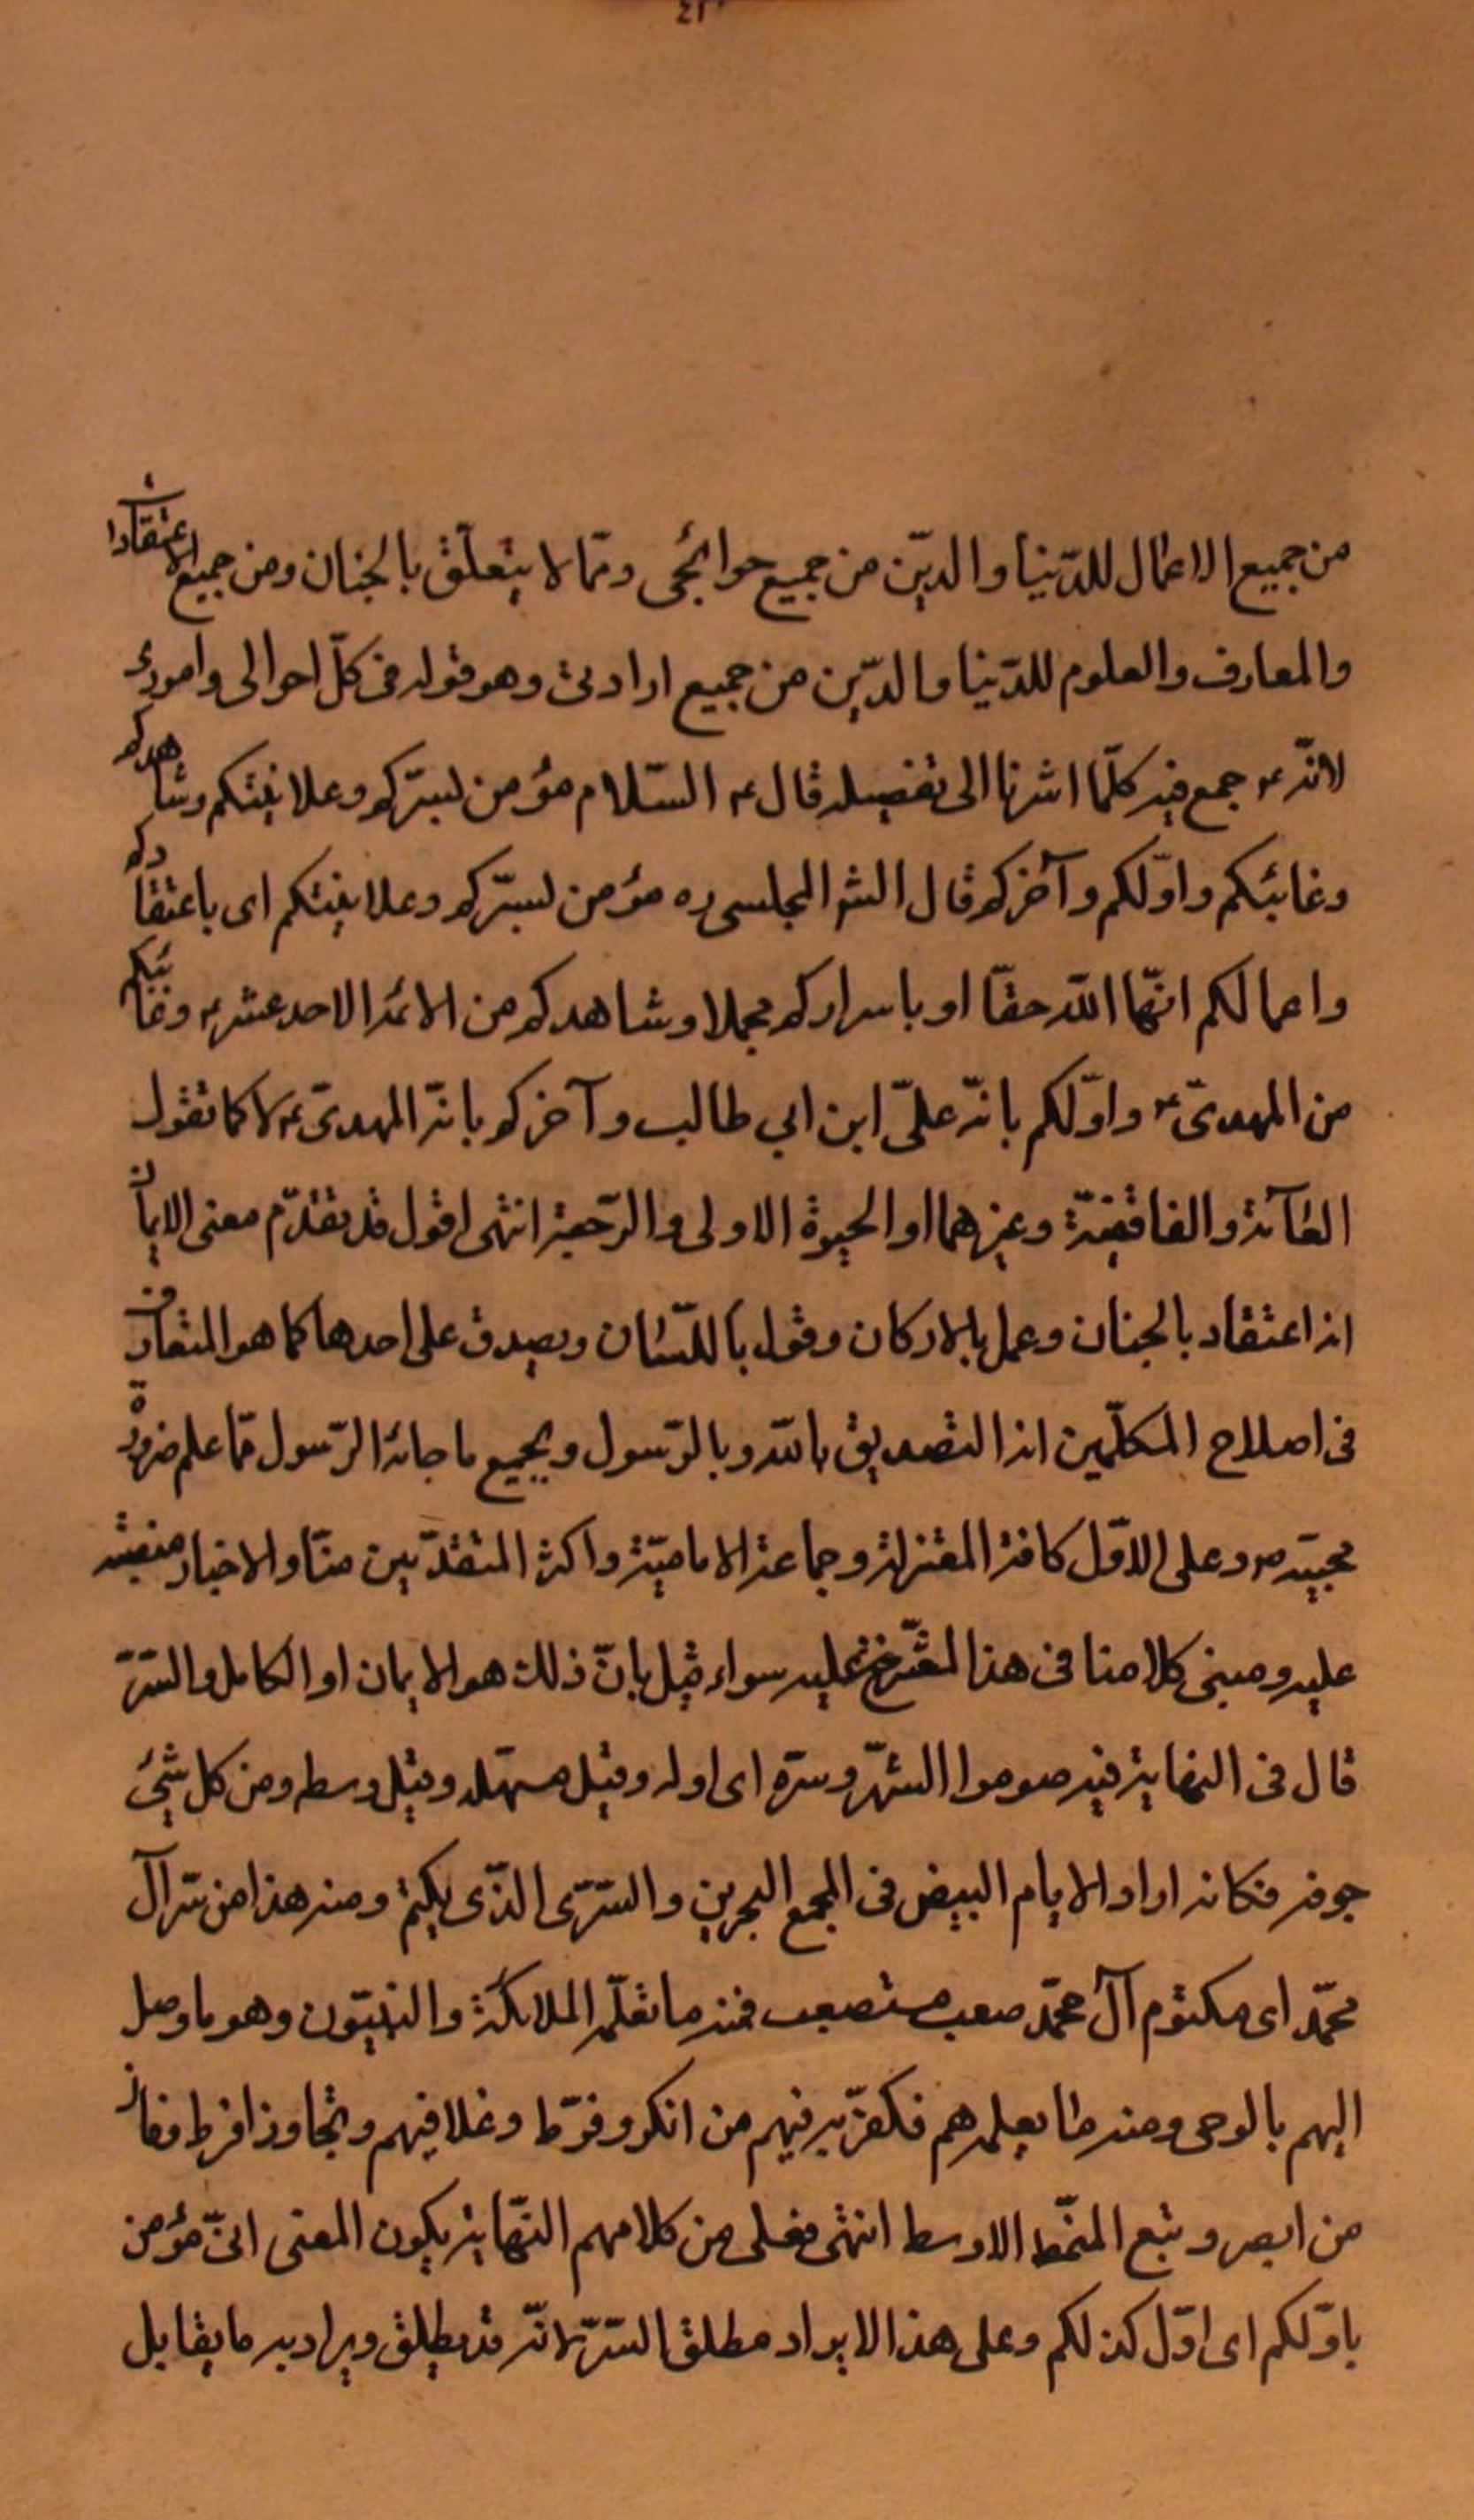 من جميع الاعمال للدّنيا والدّين من جميع حوائجى وممّا لا يتعلّق بالجنان ومن جميع الاعتقادات
والمعارف والعلوم للدّنيا والدّين من جميع ارادتى وهو قوله فى كلّ احوالى وامورى
لانّه ع جمع فيه كلّما اشرنا الى تفصيله قال ع السّلام مؤمن لسرّكم وعلانيتكم وشاهدكم
وغائبكم واوّلكم وآخركم قال الش المجلسى ره مؤمن لسرّكم وعلانيتكم اى باعتقادكم
واعمالكم انّها الله حقّا او باسراركم مجملا وشاهدكم من الائمة الاحد عشر ع وغائبكم
من المهدىّ ع واوّلكم بانّه علىّ ابن ابى طالب وآخركم بانّه المهدىّ ع لا كما تقول
العامّة والفاقفيّة وغيرهما او الحيوة الاولى والرّجعة انتهى اقول قد تقدّم معنى الايمان
انه اعتقاد بالجنان وعمل بالاركان وقول باللّسان ويصدق على احدها كما هو المتعارف
فى اصلاح المكلّمين انه التصديق بالله وبالرّسول وبجميع ما جائه الرّسول ممّا علم ضرورة
مجيئه ص وعلى الاوّل كافة المعتزلة وجماعة الاماميّة واكثر المتقدّمين منّا والاخبار منصبّة
عليه ومبنى كلامنا فى هذا الشّرح عليه سواء قيل بانّ ذلك هو الايمان او الكامل والسّرّ
قال فى النهاية فيه صوموا الشّهر وسرّه اى اوله وقيل مستهلّه وقيل وسطه ومن كل شئ
جوفه فكانه اراد الايام البيض فى المجمع البحرين والسّرّى الذّى يكتم ومنه هذا من سرّ آل
محمّد اى مكتوم آل محمّد صعب مستصعب فمنه ما تعلّمه الملائكة والنبيّون وهو ما وصل
اليهم بالوحى ومنه ما يعلمه هم فكفر به فيهم من انكر وفرّط وغلا فيهم وتجاوز افرط وفاز
من ابصر وتبع المنمّط الاوسط انتهى فعلى من كلامهم النّهاية يكون المعنى انىّ مؤمن
باوّلكم اى اوّل كذلكم وعلى هذا الايراد مطلق السّرّ لانّه قد يطلق ويراد به ما يقابل